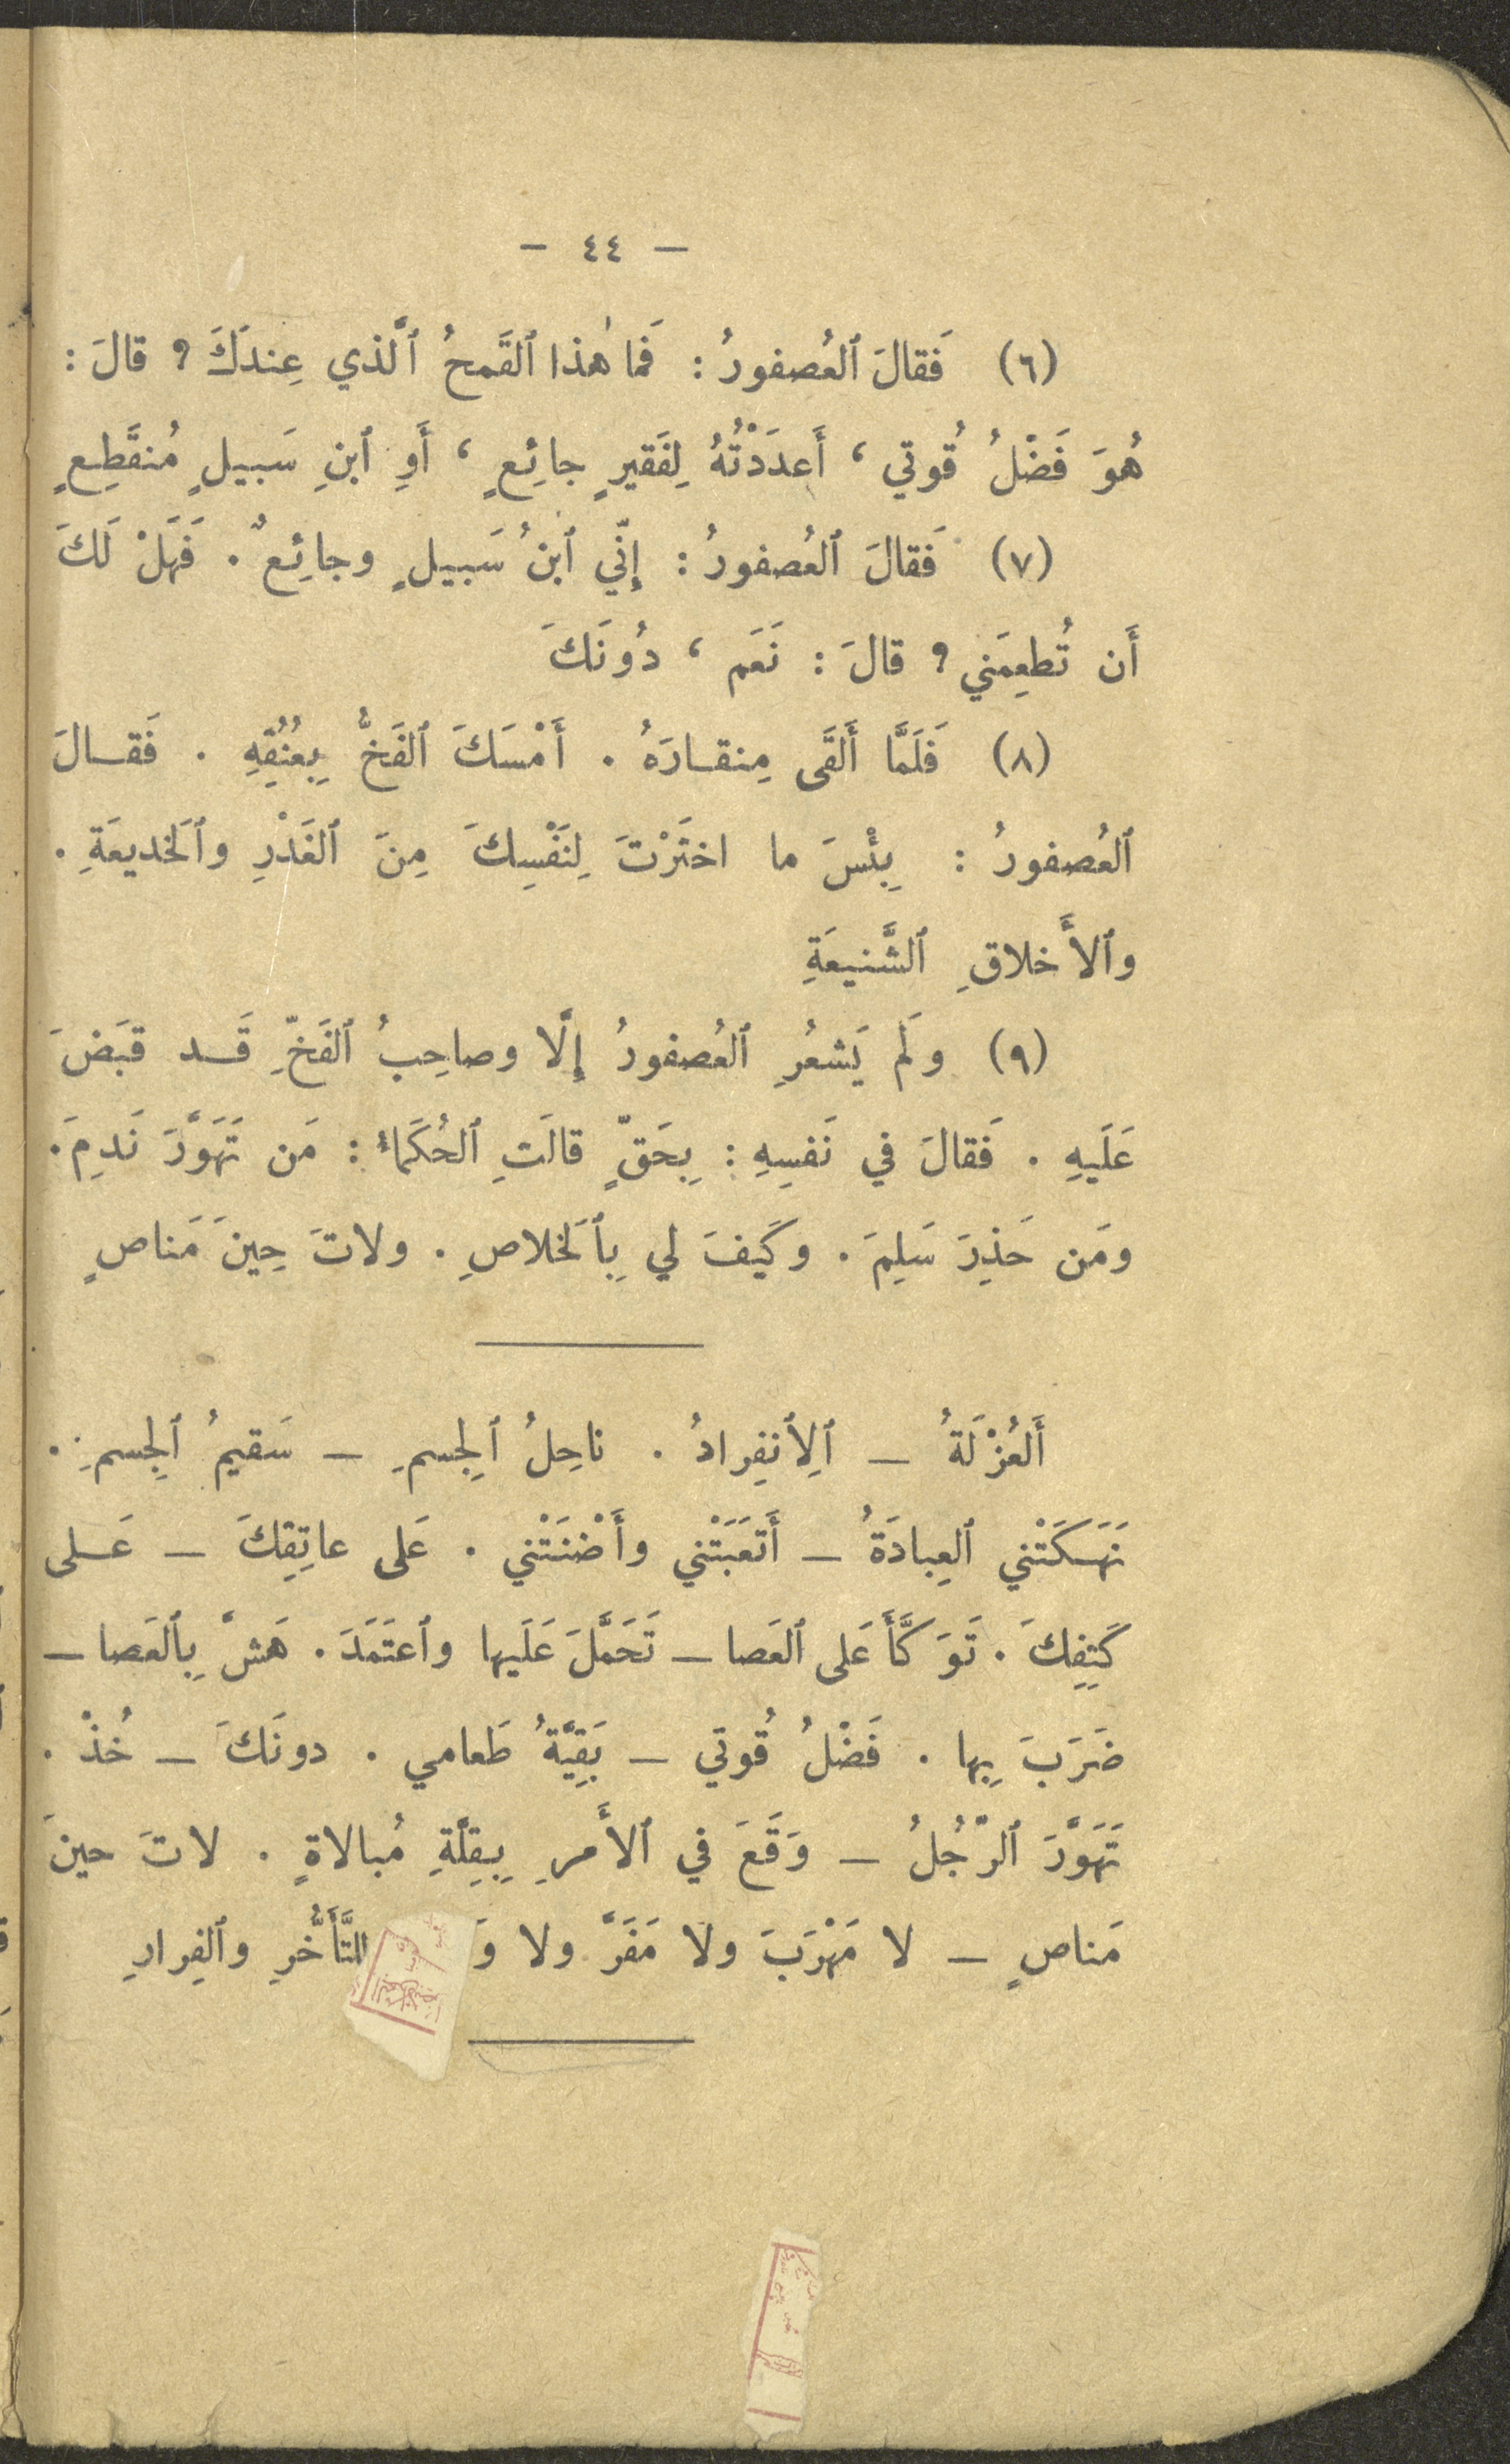 - ٤٤ -
(٦) فَقالَ ٱلعُصفورُ : فَما هٰذا ٱلقَمحُ ٱلَّذي عِندَكَ ؟ قالَ :
هُوَ فَضْلُ قُوتي ، أَعدَدْتُهُ لِفَقيرٍ جائِعٍ ، أَوِ ٱبنِ سَبيلٍ مُنقَطِعٍ
(٧) فَقالَ ٱلعُصفورُ : إِنّي ٱبنُ سَبيلٍ وجائِعٌ . فَهَلْ لَكَ
أَن تُطعِمَني ؟ قالَ : نَعَم ، دُونَكَ
(٨) فَلَمَّا أَلقَى مِنقارَهُ . أَمْسَكَ ٱلفَخُّ بِعُنُقِهِ . فَقالَ
ٱلعُصفورُ : بِئْسَ ما اختَرْتَ لِنَفْسِكَ مِنَ ٱلغَدْرِ وٱلخَديعَةِ .
وٱلأَخلاقِ ٱلشَّنيعَةِ
(٩) ولَم يَشعُرِ ٱلعُصفورُ إِلَّا وصاحِبُ ٱلفَخِّ قَد قبَضَ
عَلَيهِ . فَقالَ في نَفسِهِ : بِحَقٍّ قالَتِ ٱلحُكَماءُ : مَن تَهَوَّرَ نَدِمَ .
ومَن حَذِرَ سَلِمَ . وكَيفَ لي بِٱلخَلاصِ . ولاتَ حِينَ مَناصٍ
أَلعُزْلَةُ – ٱلِٱنفِرادُ . ناحِلُ ٱلجِسمِ – سَقيمُ ٱلجِسمِ .
نَهَكَتْني ٱلعِبادَةُ – أَتعَبَتْني وأَضْنَتْني . عَلى عاتِقِكَ – عَلى
كَتِفِكَ . تَوَكَّأَ عَلى ٱلعَصا – تَحَمَّلَ عَلَيها وٱعتَمَدَ . هَشَّ بِٱلعَصا –
ضَرَبَ بِها . فَضْلُ قُوتي – بَقِيَّةُ طَعامي . دونَكَ – خُذْ .
تَهَوَّرَ ٱلرَّجُلُ – وَقَعَ في ٱلأَمرِ بِقِلَّةِ مُبالاةٍ . لاتَ حينَ
مَناصٍ – لا مَهْرَبَ ولا مَفَرَّ ولا لِلتَّأَخُّرِ وٱلفِرارِ